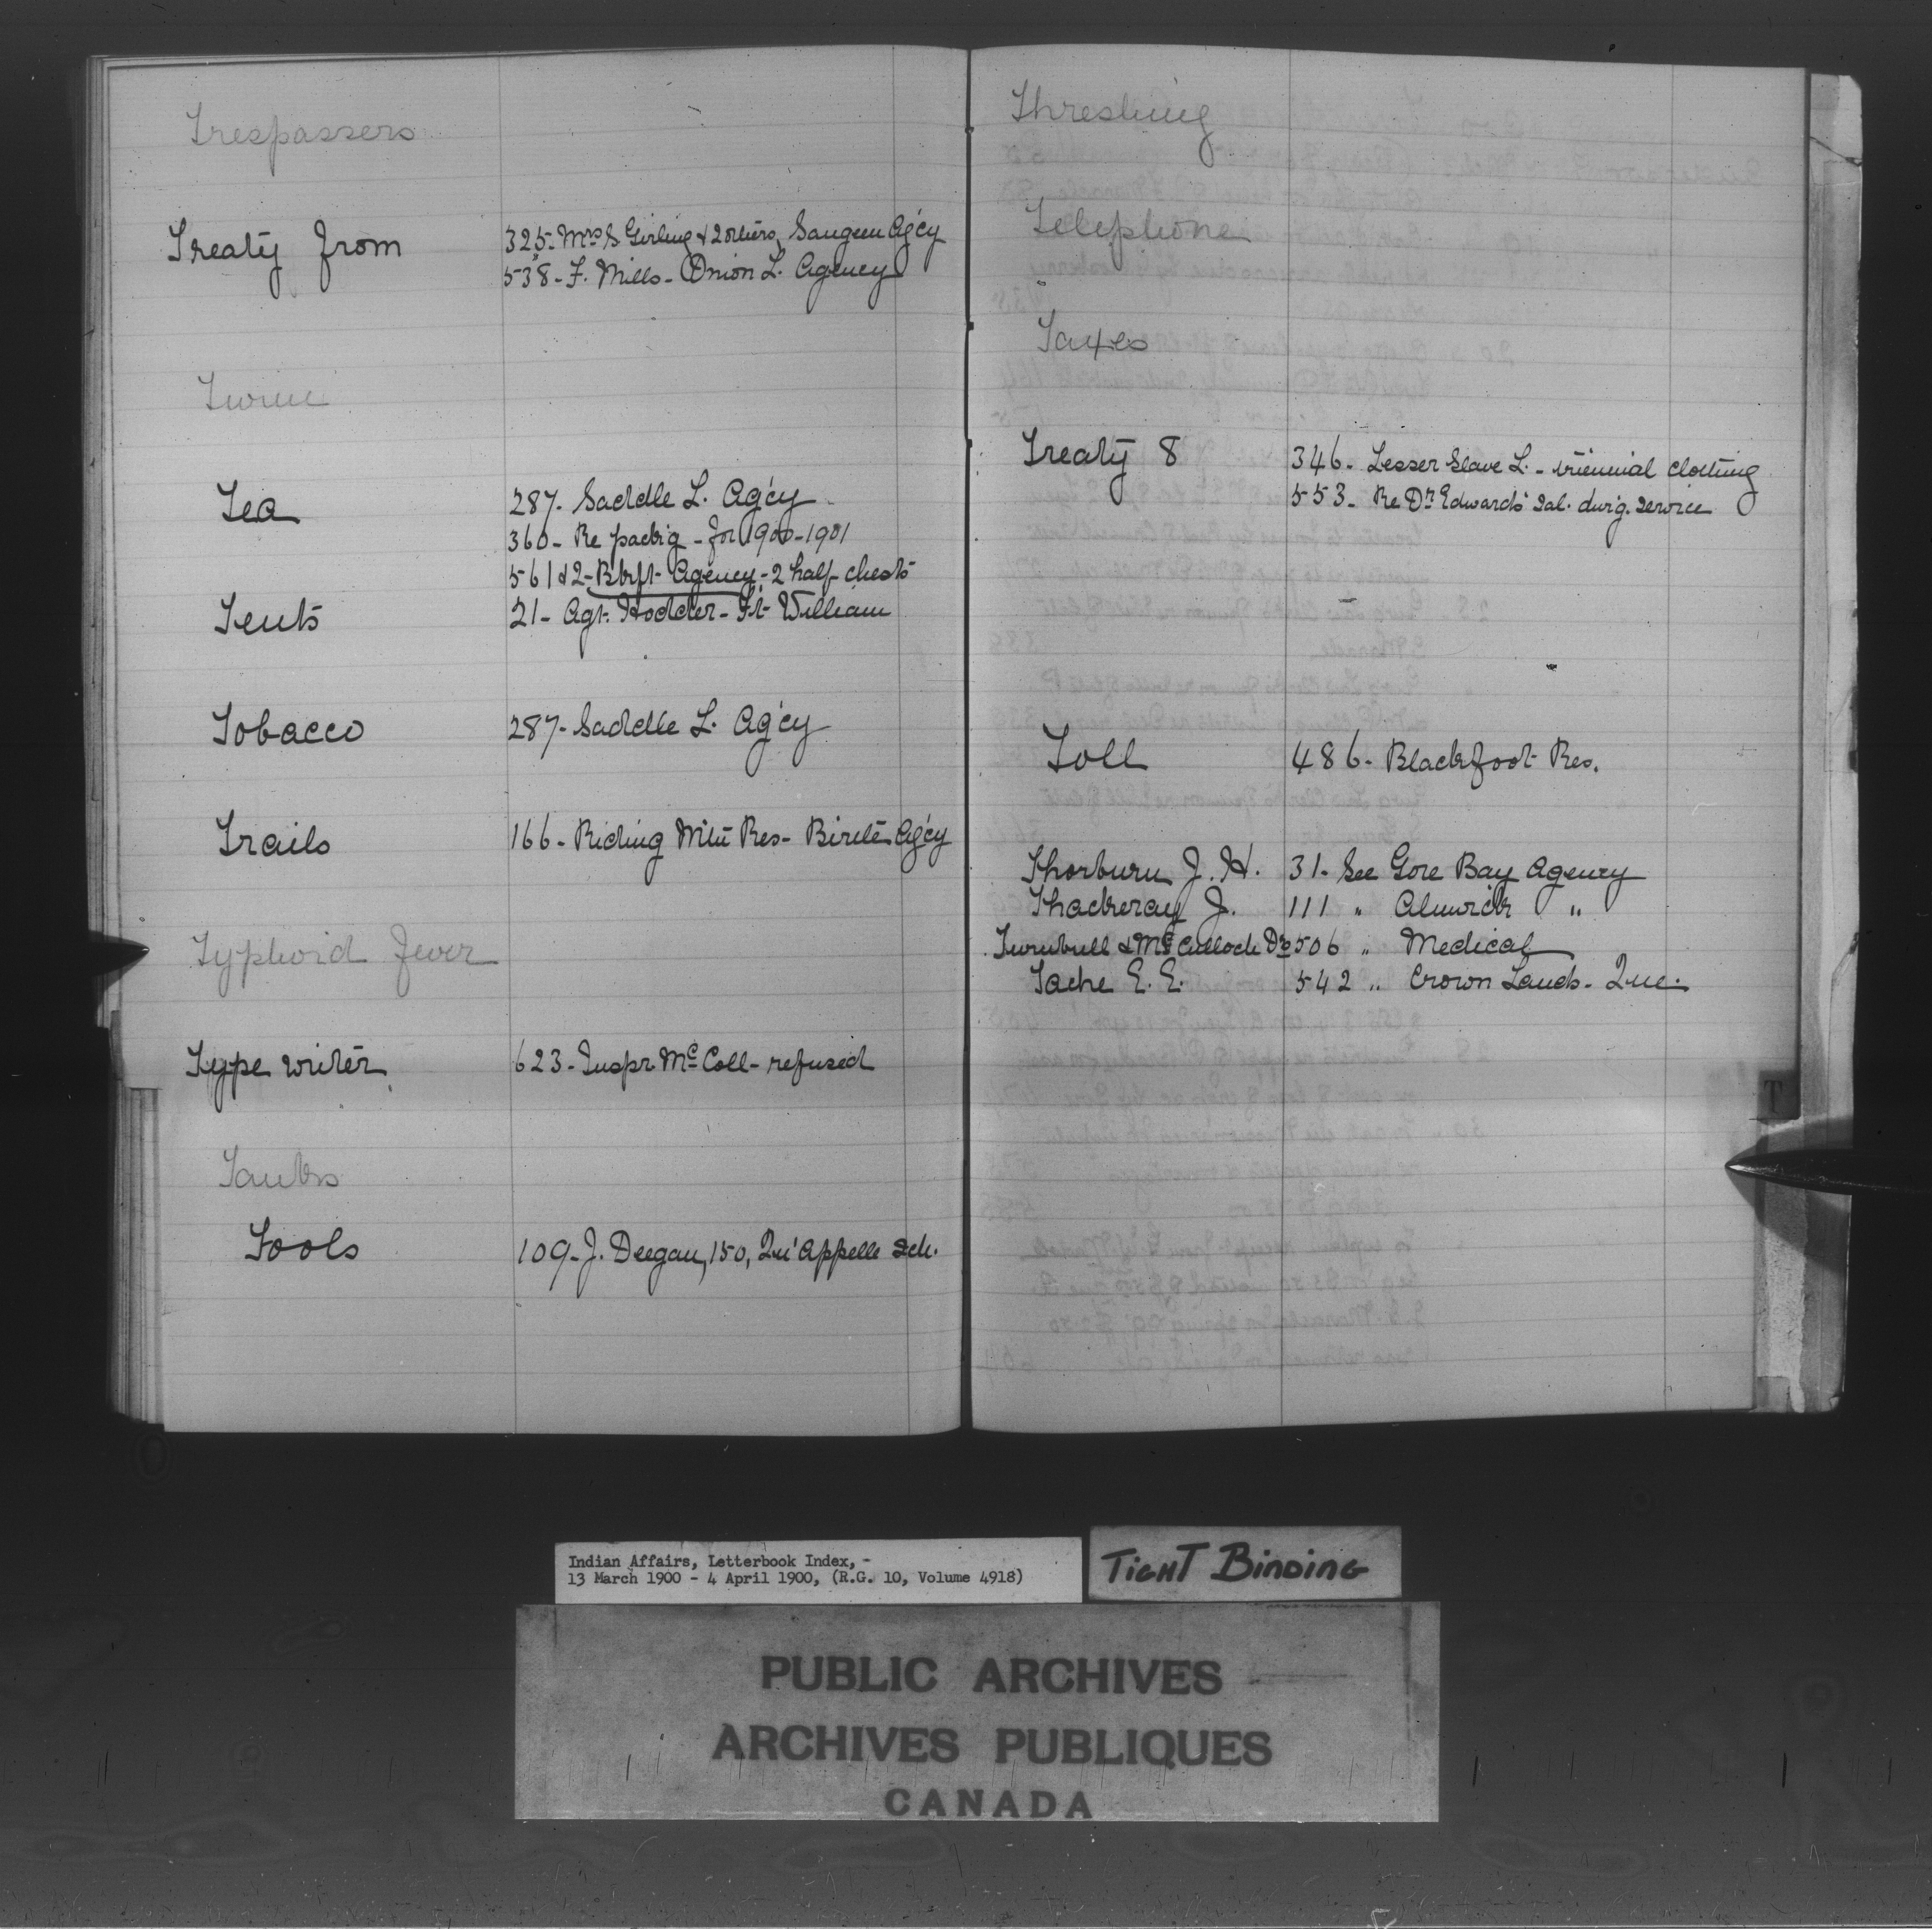 Trespassers
Treaty from 325- Mrs S Girling & 2 others, Saugeen Ag'cy
538- F. Mills- Onion L. Agency
Twine
Tea 287- Saddle L. Ag'cy
360- Re pack'g - for 1900-1901
561 & 2- Btlft- Agency- 2 half-chests
Tents 21- Agt. Hodder- Ft- William
Tobacco 287- Saddle L. Ag'cy
Trails 166- Riding Mtn Res- Birtle Ag'cy
Typhoid Fever
Type writer 623- Inspr. McColl- refused
Tanks
Tools 109- J. Deegan, 150, Qu'Appelle Sch.
Threshing
Telephone
Taxes
Treaty 8 346- Lesser Slave L. - triennial clothing
553- Re Dr Edwards' Sal. durg. service
Toll 486- Blackfoot Res.
Thorburn J. H. 31- See Gore Bay Agency
Thackeray J. 111 " Alnwick "
Turnbull & McCulloch Drs 506 " Medical
Tache E. E. 542 " Crown Lands- Que.
T
Indian Affairs, Letterbook Index, -
13 March 1900 - 4 April 1900, (R.G. 10, Volume 4918)
TIGHT BINDING
PUBLIC ARCHIVES
ARCHIVES PUBLIQUES
CANADA